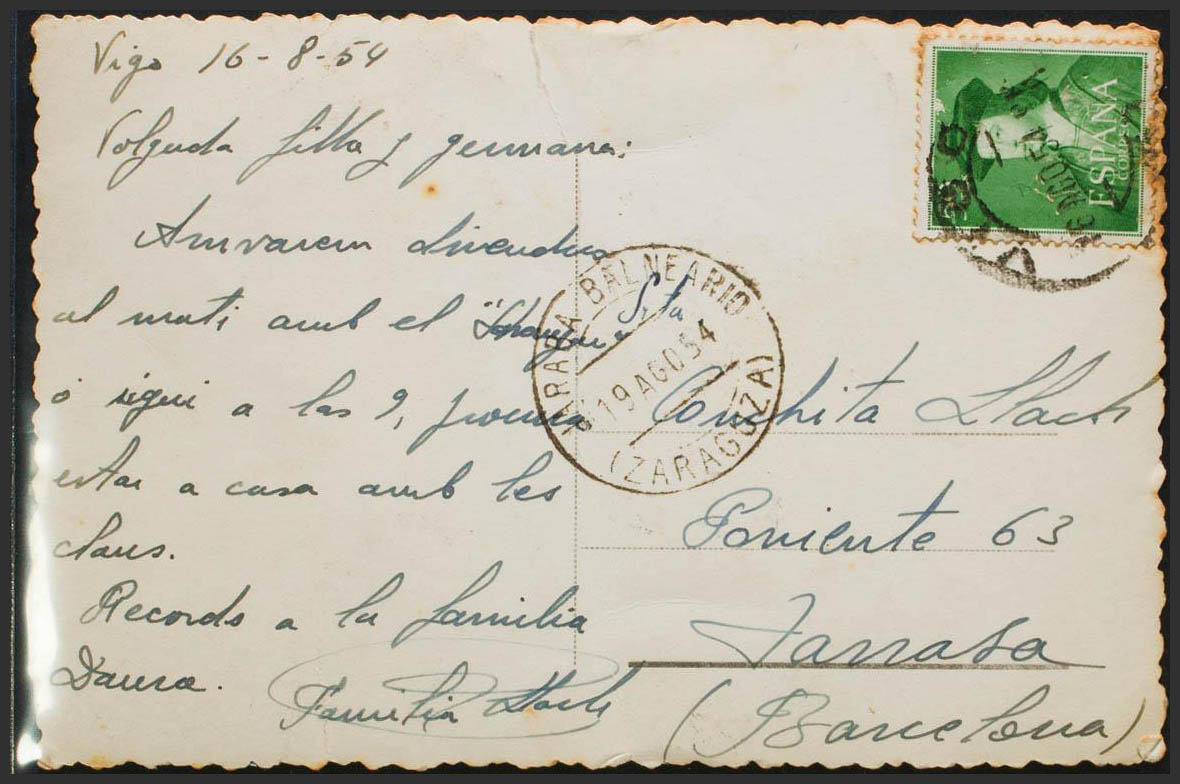 Vigo 16-8-54
Volguda filla y germana:
Arrivarem divendres
al mati amb el "Shangai"
ó sigui a las 9, procura
estar a casa amb les
claus.
Records a la familia
Daura.
Familia Llach
ESPAÑA
CORREOS
VIGO
JARABA BALNEARIO
19 AGO 54
(ZARAGOZA)
Srta
Conchita Llach
Poniente 63
Tarrasa
(Barcelona)